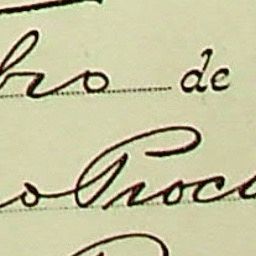 bro de
o Proc